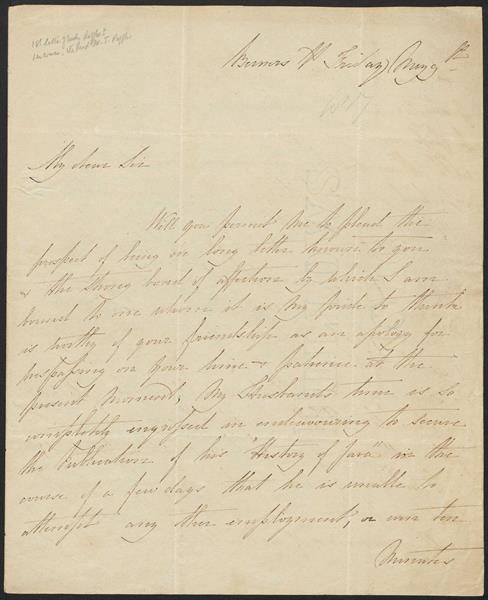 1st letter of Lady Raffles to
Berners St Friday May 9th
1817
My dear Sir
Will you permit me to plead the
prospect of being ere long better known to you
& the strong bond of affection by which I am
bound to one whom it is my pride to think
is worthy of your friendship as an apology for
trespassing on your time & patience at the
present moment, My Husbands time is so
completely engrossed in endeavouring to secure
the Publication of his "History of Java" in the
course of a few days that he is unable to
attempt any other employment, or even ten
Minutes